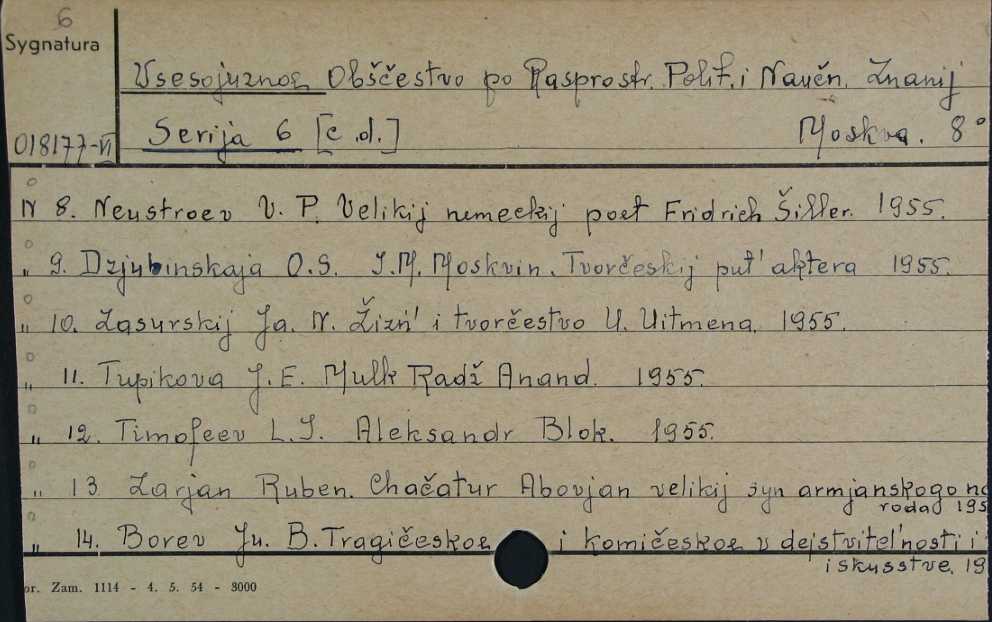 6
Sygnatura
Vsesojuznoe Obščestvo po Rasprostr. Polit. i Naučn. Znanij
018177-VI Serija 6 [c.d.] Moskva. 8°
N° 8. Neustroev V. P. Velikij nemeckij poet Fridrich Šiller. 1955.
" 9. Dzjubinskaja O.S. I.M. Moskvin. Tvorčeskij put' aktera 1955.
" 10. Zasurskij Ja. N. Žizń' i tvorčestvo U. Uitmena. 1955.
" 11. Tupikova I. E. Mulk Radž Anand. 1955.
" 12. Timofeev L.I. Aleksandr Blok. 1955.
" 13. Zarjan Ruben. Chačatur Abovjan velikij syn armjanskogo na
roda 195
" 14. Borev Ju. B. Tragičeskoe i komičeskoe v dejstvitel'nosti i
iskusstve. 19
or. Zam. 1114 - 4. 5. 54 - 3000